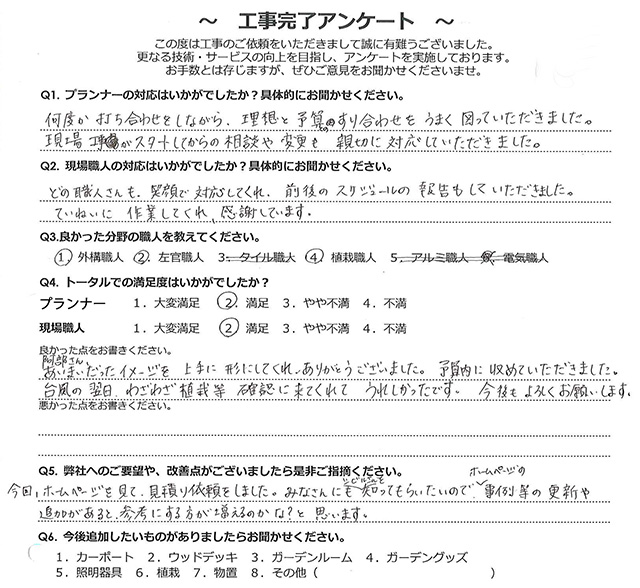 ～ 工事完了アンケート ～
この度は工事のご依頼をいただきまして誠に有難うございました。
更なる技術・サービスの向上を目指し、アンケートを実施しております。
お手数とは存じますが、ぜひご意見をお聞かせくださいませ。
Q1. プランナーの対応はいかがでしたか？具体的にお聞かせください。
何度か打ち合わせをしながら、理想と予算のすり合わせをうまく図っていただきました。
現場工事がスタートしてからの相談や変更も親切に対応していただきました。
Q2. 現場職人の対応はいかがでしたか？具体的にお聞かせください。
どの職人さんも、笑顔で対応してくれ、前後のスケジュールの報告もしていただきました。
ていねいに作業してくれ、感謝しています。
Q3.良かった分野の職人を教えてください。
① 外構職人 ② 左官職人 3．タイル職人 ④ 植栽職人 5．アルミ職人 電気職人
Q4. トータルでの満足度はいかがでしたか？
プランナー 1．大変満足 ② 満足 3．やや不満 4．不満
現場職人 1．大変満足 ② 満足 3．やや不満 4．不満
良かった点をお書きください。
阿部さん、
あいまいだったイメージを上手に形にしてくれ、ありがとうございました。予算内に収めていただきました。
台風の翌日、わざわざ植栽等確認に来てくれてうれしかったです。今後もよろしくお願いします。
悪かった点をお書きください。
Q5. 弊社へのご要望や、改善点がございましたら是非ご指摘ください。
今回、ホームページを見て、見積り依頼をしました。みなさんにも知ってもらいたいので、ホームページの事例等の更新や
追加があると、参考にする方が増えるのかな？と思います。
Q6. 今後追加したいものがありましたらお聞かせください。
1．カーポート 2．ウッドデッキ 3．ガーデンルーム 4．ガーデングッズ
5．照明器具 6．植栽 7．物置 8．その他（ ）